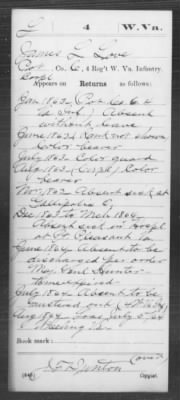 L | 4 | W. Va.
James L Love
Pvt, Co. C, 4 Reg't W. Va. Infantry.
Corpl
Appears on
Returns as follows:
Jan. 1862, Pvt Co. C. 4
Va Inf) Absent
without leave
June 1862, Rank not shown
Color bearer
July 1863 Color guard
Aug 1863 (Corpl) Color
bearer
Nov. 1863 Absent sick at
Gallipolis O,
Dec 1863 to Mch 1864,
Absent sick in Hospl
at Pt Pleasant Va
June 1864 Absent to be
discharged per order
Maj Genl Hunter
time expired
July 1864 Absent to be
mustered out
Aug 1864 Loss July 5/64
Book mark:
(over)
Copyist.